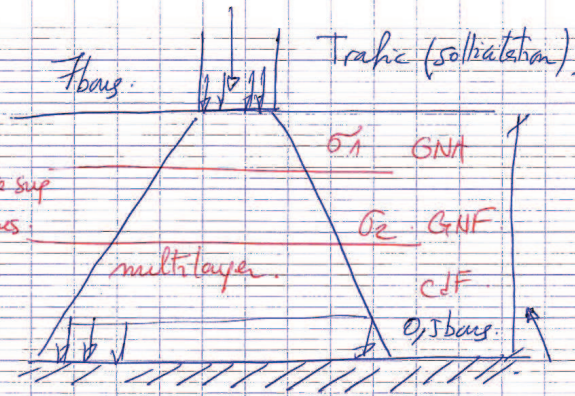 Trafic (sollicitation)
7bars.
σ1 GNA
sup
σ2. GNF
multilayer.
CdF
0,5bars.